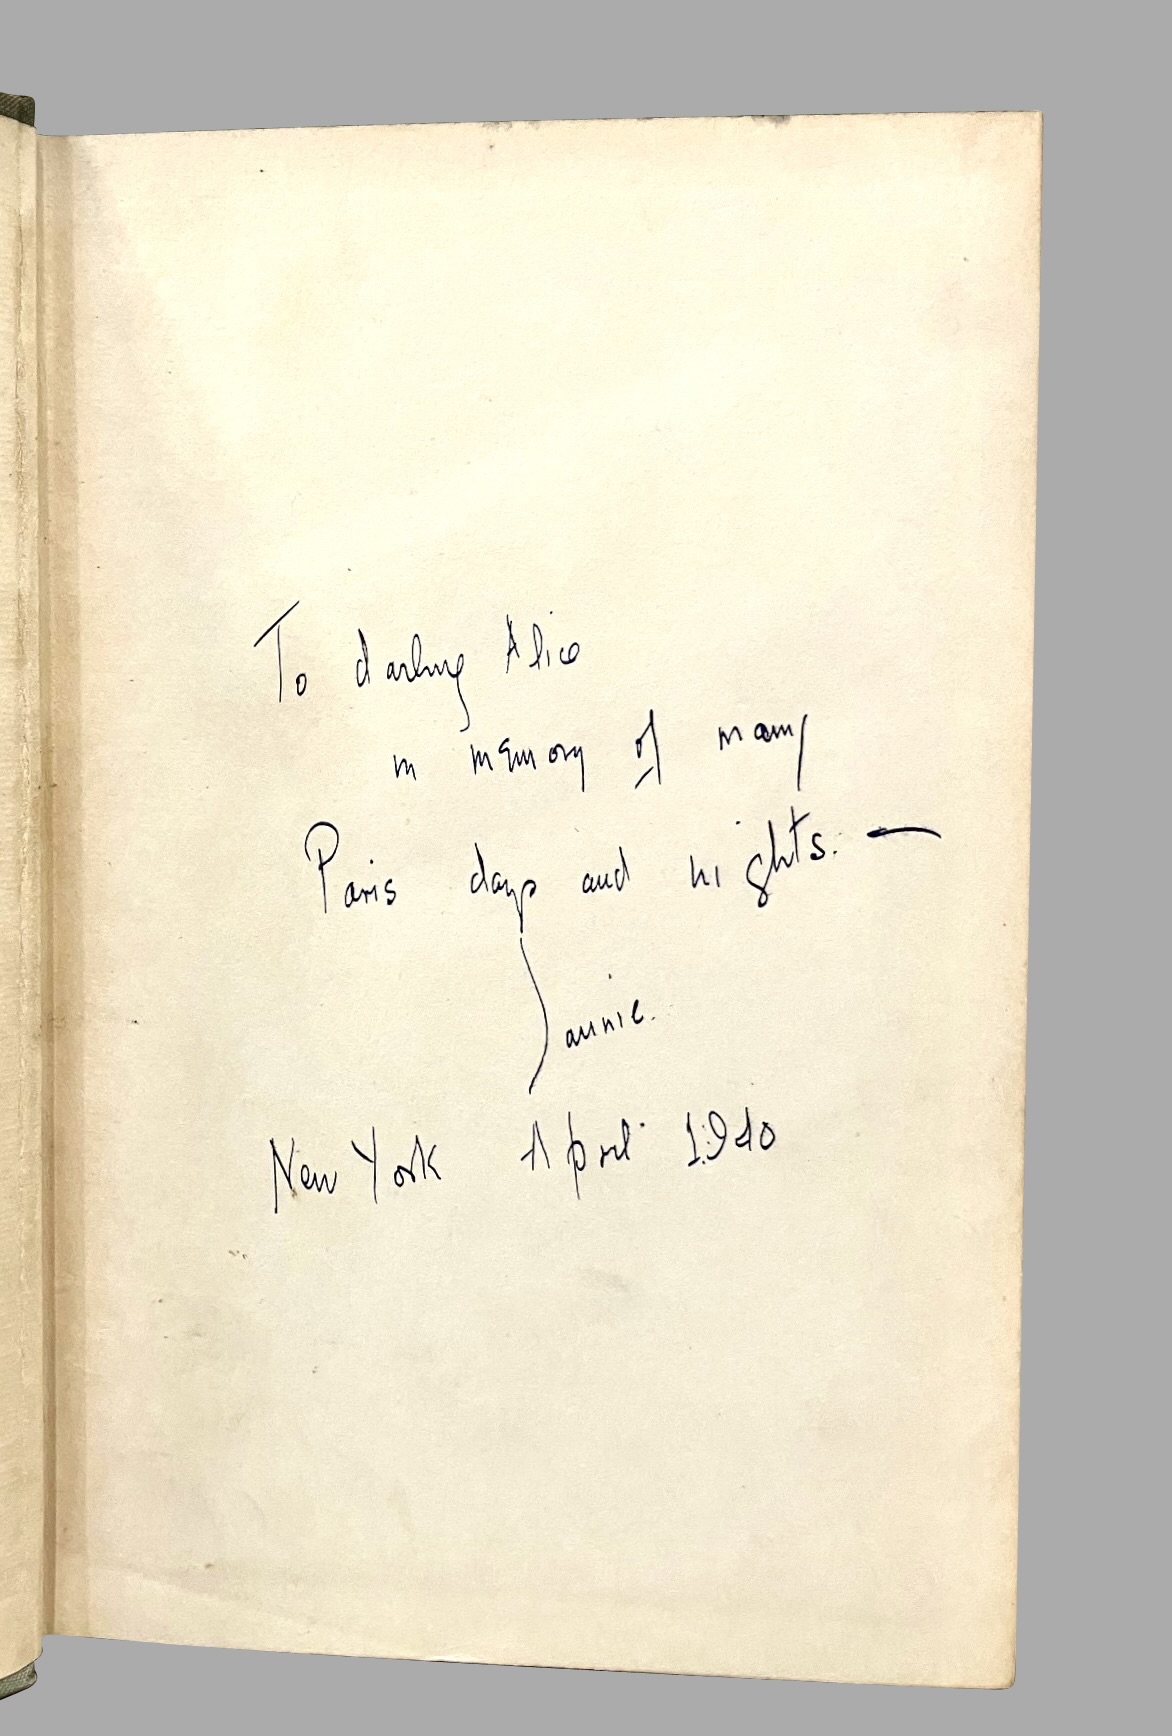 To darling Alice
in memory of many
Paris days and nights. —
Jannie.
New York April 1940